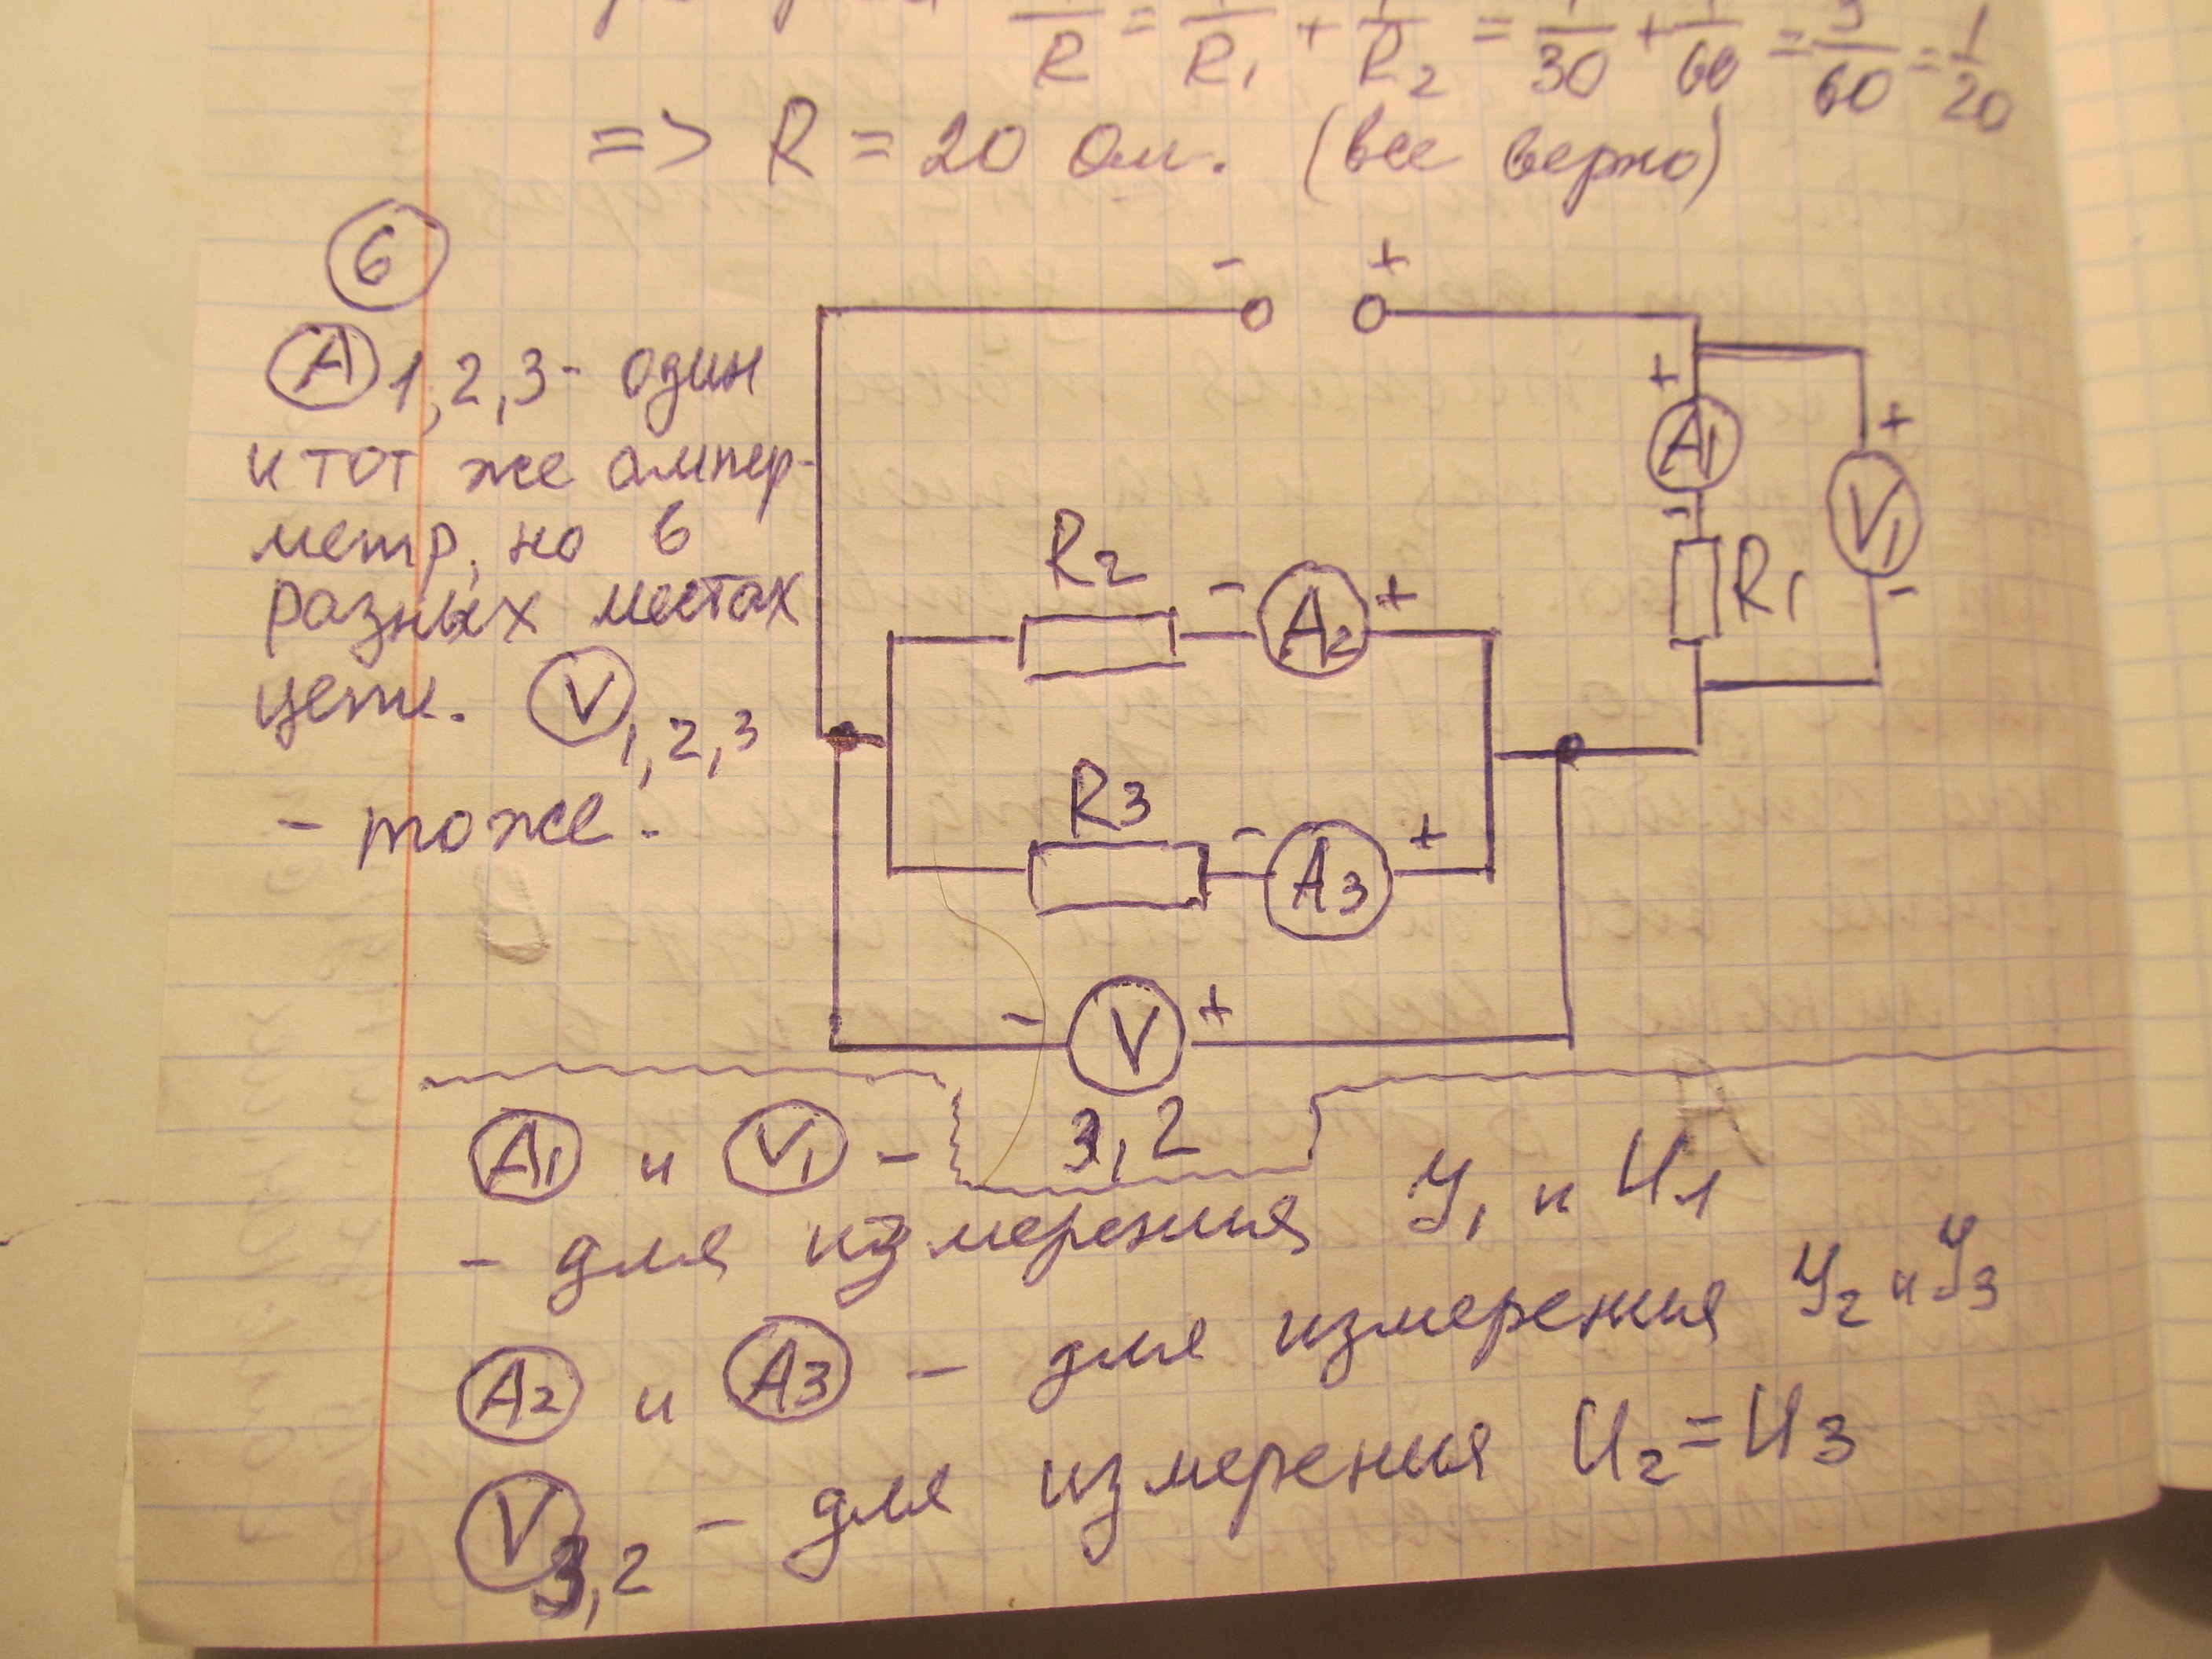 1/R = 1/R1 + 1/R2 = 1/30 + 1/60 = 3/60 = 1/20
=> R = 20 Ом. (все верно)
6
A 1,2,3 - один
и тот же ампер-
метр, но в
разных местах
цепи. V 1,2,3
- тоже.
- +
+ A1 -
+ V1 -
R1
R2 - A2 +
R3 - A3 +
- V +
3,2
A1 и V1 -
- для измерения У1 и U1
A2 и A3 - для измерения У2 и У3
V 3,2 - для измерения U2 = U3